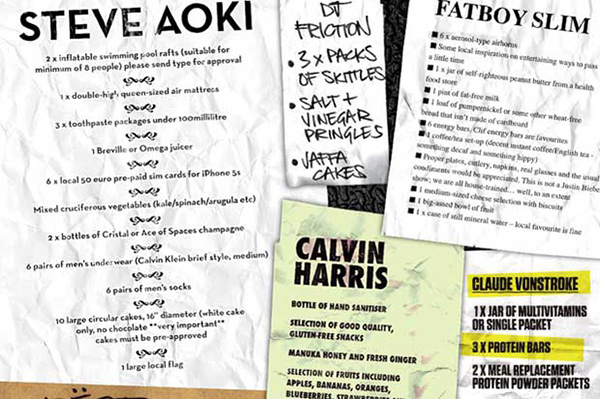 STEVE AOKI
2 x inflatable swimming pool rafts (suitable for
minimum of 8 people) please send type for approval
1 x double-high queen-sized air mattress
3 x toothpaste packages under 100millilitre
1 Breville or Omega juicer
6 x local 50 euro pre-paid sim cards for iPhone 5s
Mixed cruciferous vegetables (kale/spinach/arugula etc)
2 x bottles of Cristal or Ace of Spaces champagne
6 pairs of men's underwear (Calvin Klein brief style, medium)
6 pairs of men's socks
10 large circular cakes, 16" diameter (white cake
only, no chocolate **very important**
cakes must be pre-approved
1 large local flag
DJ
FRICTION
• 3 x PACKS
OF SKITTLES
• SALT +
VINEGAR
PRINGLES
• JAFFA
CAKES
FATBOY SLIM
■ 6 x aerosol-type airhorns
■ Some local inspiration on entertaining ways to pass
a little time
■ 1 x jar of self-righteous peanut butter from a health
food store
■ 1 pint of fat-free milk
■ 1 loaf of pumpernickel or some other wheat-free
bread that isn't made of cardboard
■ 6 energy bars/Clif energy bars are favourites
■ 4 coffee/tea set-up (decent instant coffee/English tea -
something decaf and something hippy)
■ Proper plates, cutlery, napkins, real glasses and the usual
condiments would be appreciated. This is not a Justin Bieber
show; we are all home-trained... well, to an extent
■ 1 medium-sized cheese selection with biscuits
■ 1 big-assed bowl of fruit
■ 1 x case of still mineral water – local favourite is fine
CALVIN
HARRIS
BOTTLE OF HAND SANITISER
SELECTION OF GOOD QUALITY,
GLUTEN-FREE SNACKS
MANUKA HONEY AND FRESH GINGER
SELECTION OF FRUITS INCLUDING
APPLES, BANANAS, ORANGES,
BLUEBERRIES, STRAWBERRIES
CLAUDE VONSTROKE
1 X JAR OF MULTIVITAMINS
OR SINGLE PACKET
3 X PROTEIN BARS
2 X MEAL REPLACEMENT
PROTEIN POWDER PACKETS